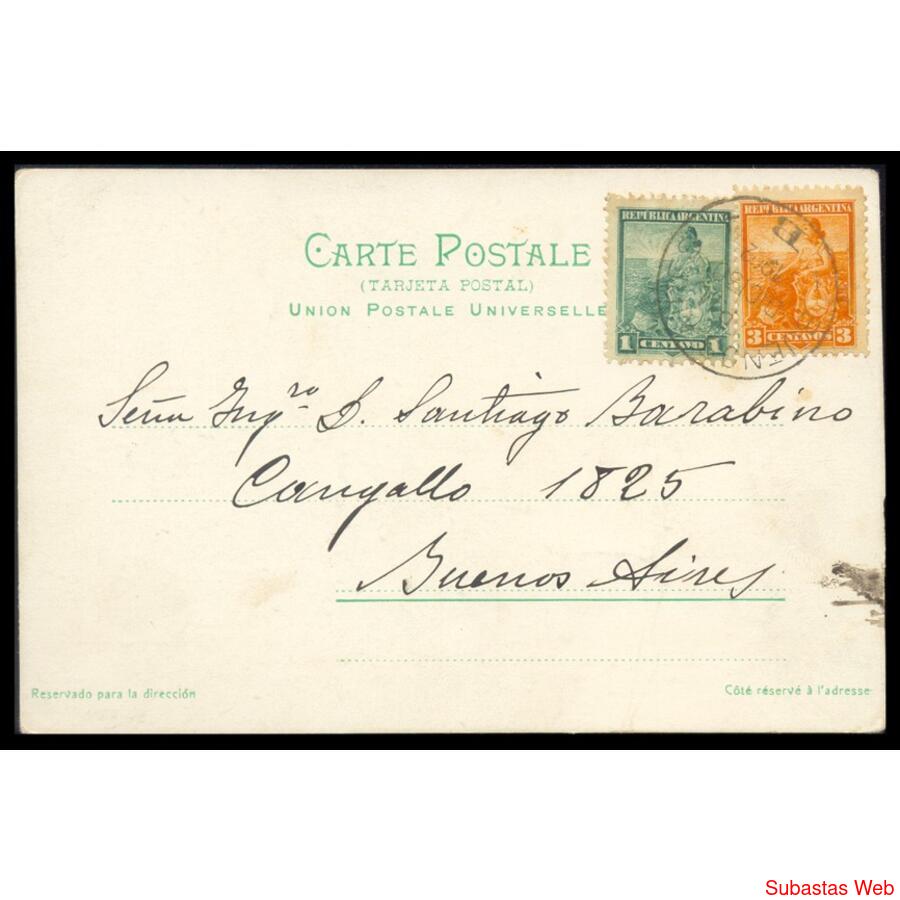 CARTE POSTALE
(TARJETA POSTAL)
UNION POSTALE UNIVERSELLE
REPUBLICA ARGENTINA
1 CENTAVO 1
REPUBLICA ARGENTINA
3 CENTAVOS 3
B
Señr Ingro D. Santiago Barabino
Cangallo 1825
Buenos Aires
Reservado para la dirección
Côté réservé à l'adresse
Subastas Web